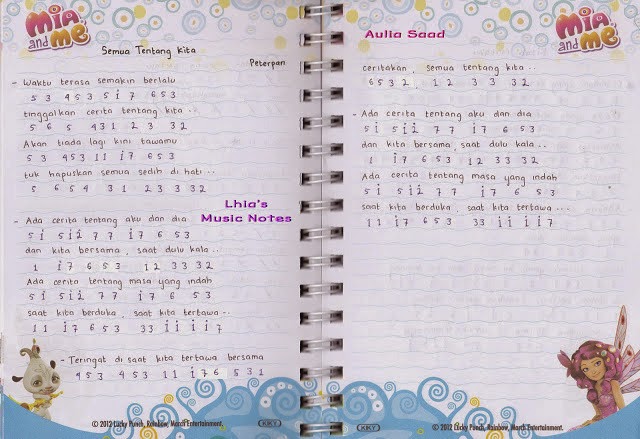 Mia and me
Semua Tentang Kita
Peterpan
- Waktu terasa semakin berlalu
5 3 4 5 3 5 i 7 6 5 3
tinggalkan cerita tentang kita ..
5 6 5 4 3 1 2 3 3 2
Akan tiada lagi kini tawamu
5 3 4 5 3 1 1 i 7 6 5 3
tuk hapuskan semua sedih di hati ...
5 6 5 4 3 1 2 3 3 3 2
Lhia's
Music Notes
- Ada cerita tentang aku dan dia
5 i 5 i 2 7 7 i 7 6 5 3
dan kita bersama, saat dulu kala ..
1 i 7 6 5 3 1 2 3 3 3 2
Ada cerita tentang masa yang indah
5 i 5 i 2 7 7 i 7 6 5 3
saat kita berduka, saat kita tertawa ..
1 1 i 7 6 5 3 3 3 i i i i 7
- Teringat di saat kita tertawa bersama
4 5 3 4 5 3 1 1 i 7 6 5 3 1
© 2012 Lucky Punch, Rainbow, March Entertainment.
KIKY
Aulia Saad
Mia and me
ceritakan, semua tentang kita ..
6 5 3 2 1 2 3 3 3 2
- Ada cerita tentang aku dan dia
5 i 5 i 2 7 7 i 7 6 5 3
dan kita bersama, saat dulu kala ..
1 i 7 6 5 3 1 2 3 3 3 2
Ada cerita tentang masa yang indah
5 i 5 i 2 7 7 i 7 6 5 3
saat kita berduka, saat kita tertawa ...
1 1 i 7 6 5 3 3 3 i i i i 7
© 2012 Lucky Punch, Rainbow, March Entertainment.
KIKY